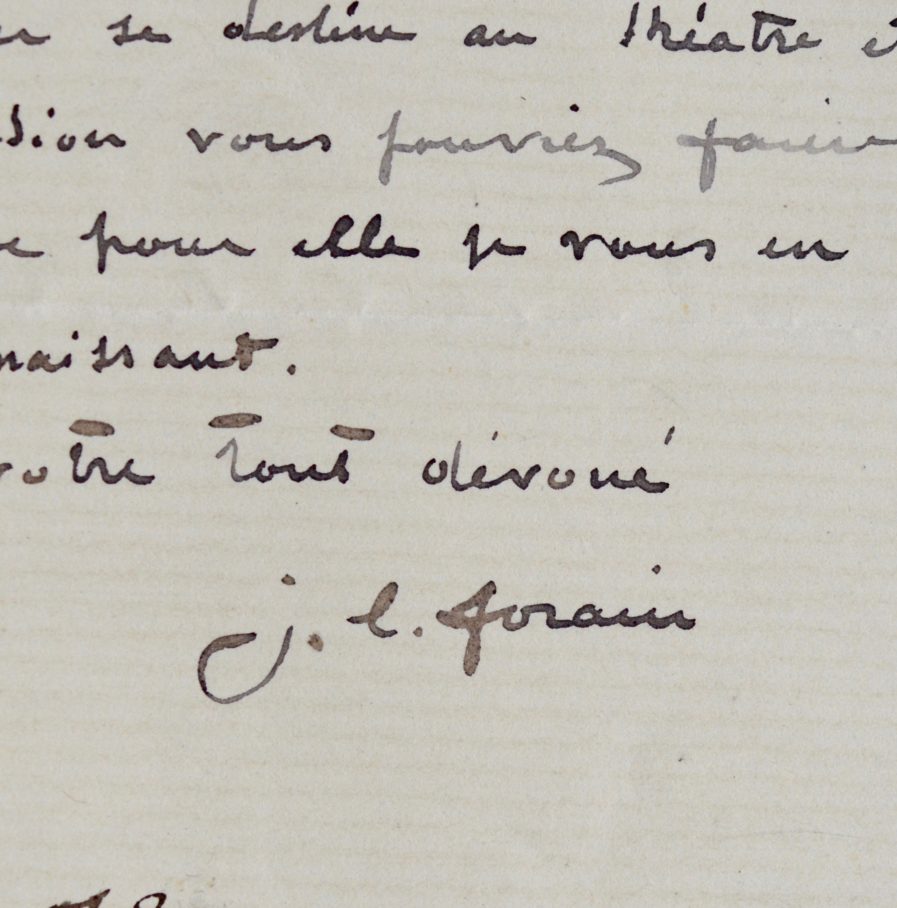 se destine au théatre
sion vous pouviez faire
pour elle je vous en
naissant.
votre tout dévoué
j. l. forain